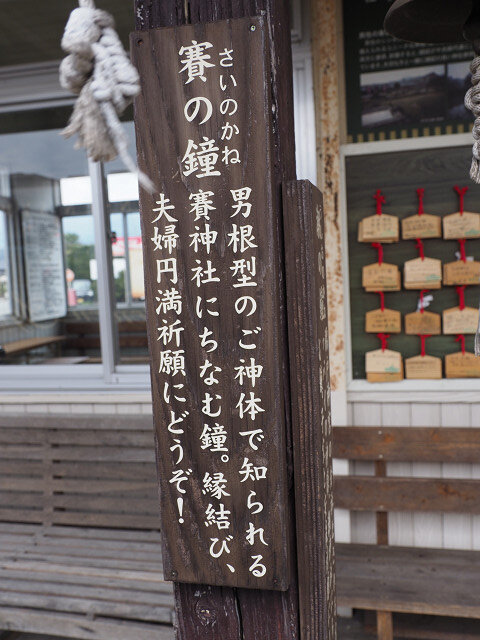 賽の鐘
さいのかね
男根型のご神体で知られる
賽神社にちなむ鐘。縁結び、
夫婦円満祈願にどうぞ！